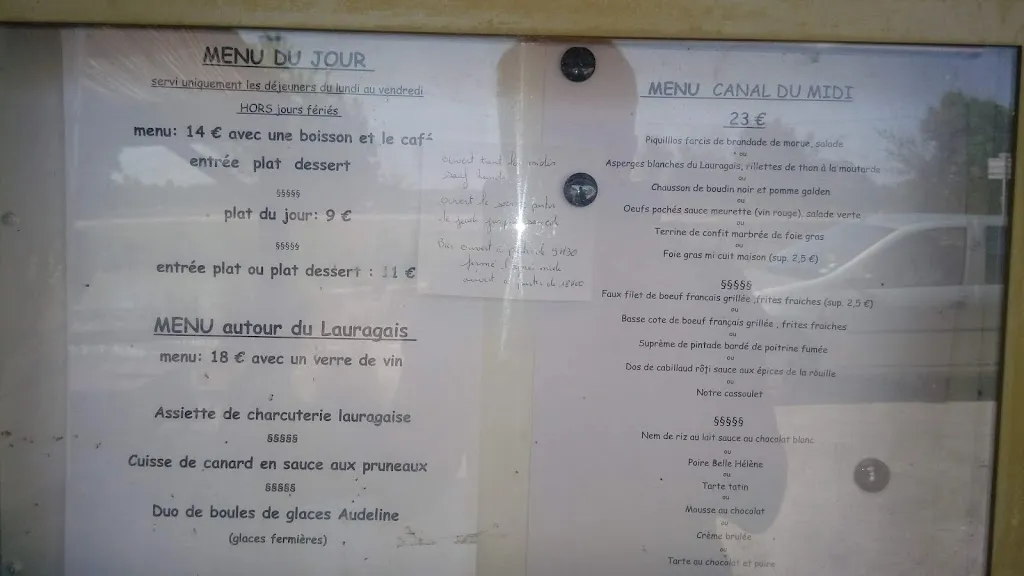 MENU DU JOUR
servi uniquement les déjeuners du lundi au vendredi
HORS jours fériés
menu: 14 € avec une boisson et le café
entrée plat dessert
§§§§§
plat du jour: 9 €
§§§§§
entrée plat ou plat dessert : 11 €
MENU autour du Lauragais
menu: 18 € avec un verre de vin
Assiette de charcuterie lauragaise
§§§§§
Cuisse de canard en sauce aux pruneaux
§§§§§
Duo de boules de glaces Audeline
(glaces fermières)
ouvert tout les midis
sauf lundi
ouvert le soir
Bar ouvert à partir de 9H30
fermé l'après midi
ouvert à partir de 18H00
MENU CANAL DU MIDI
23 €
Piquillos farcis de brandade de morue, salade
ou
Asperges blanches du Lauragais, rillettes de thon à la moutarde
ou
Chausson de boudin noir et pomme golden
ou
Oeufs pochés sauce meurette (vin rouge), salade verte
ou
Terrine de confit marbrée de foie gras
ou
Foie gras mi cuit maison (sup. 2,5 €)
§§§§§
Faux filet de boeuf francais grillée ,frites fraiches (sup. 2,5 €)
ou
Basse cote de boeuf français grillée , frites fraiches
ou
Suprème de pintade bardé de poitrine fumée
ou
Dos de cabillaud rôti sauce aux épices de la rouille
ou
Notre cassoulet
§§§§§
Nem de riz au lait sauce au chocolat blanc
ou
Poire Belle Hélène
ou
Tarte tatin
ou
Mousse au chocolat
ou
Crème brulée
ou
Tarte au chocolat et poire